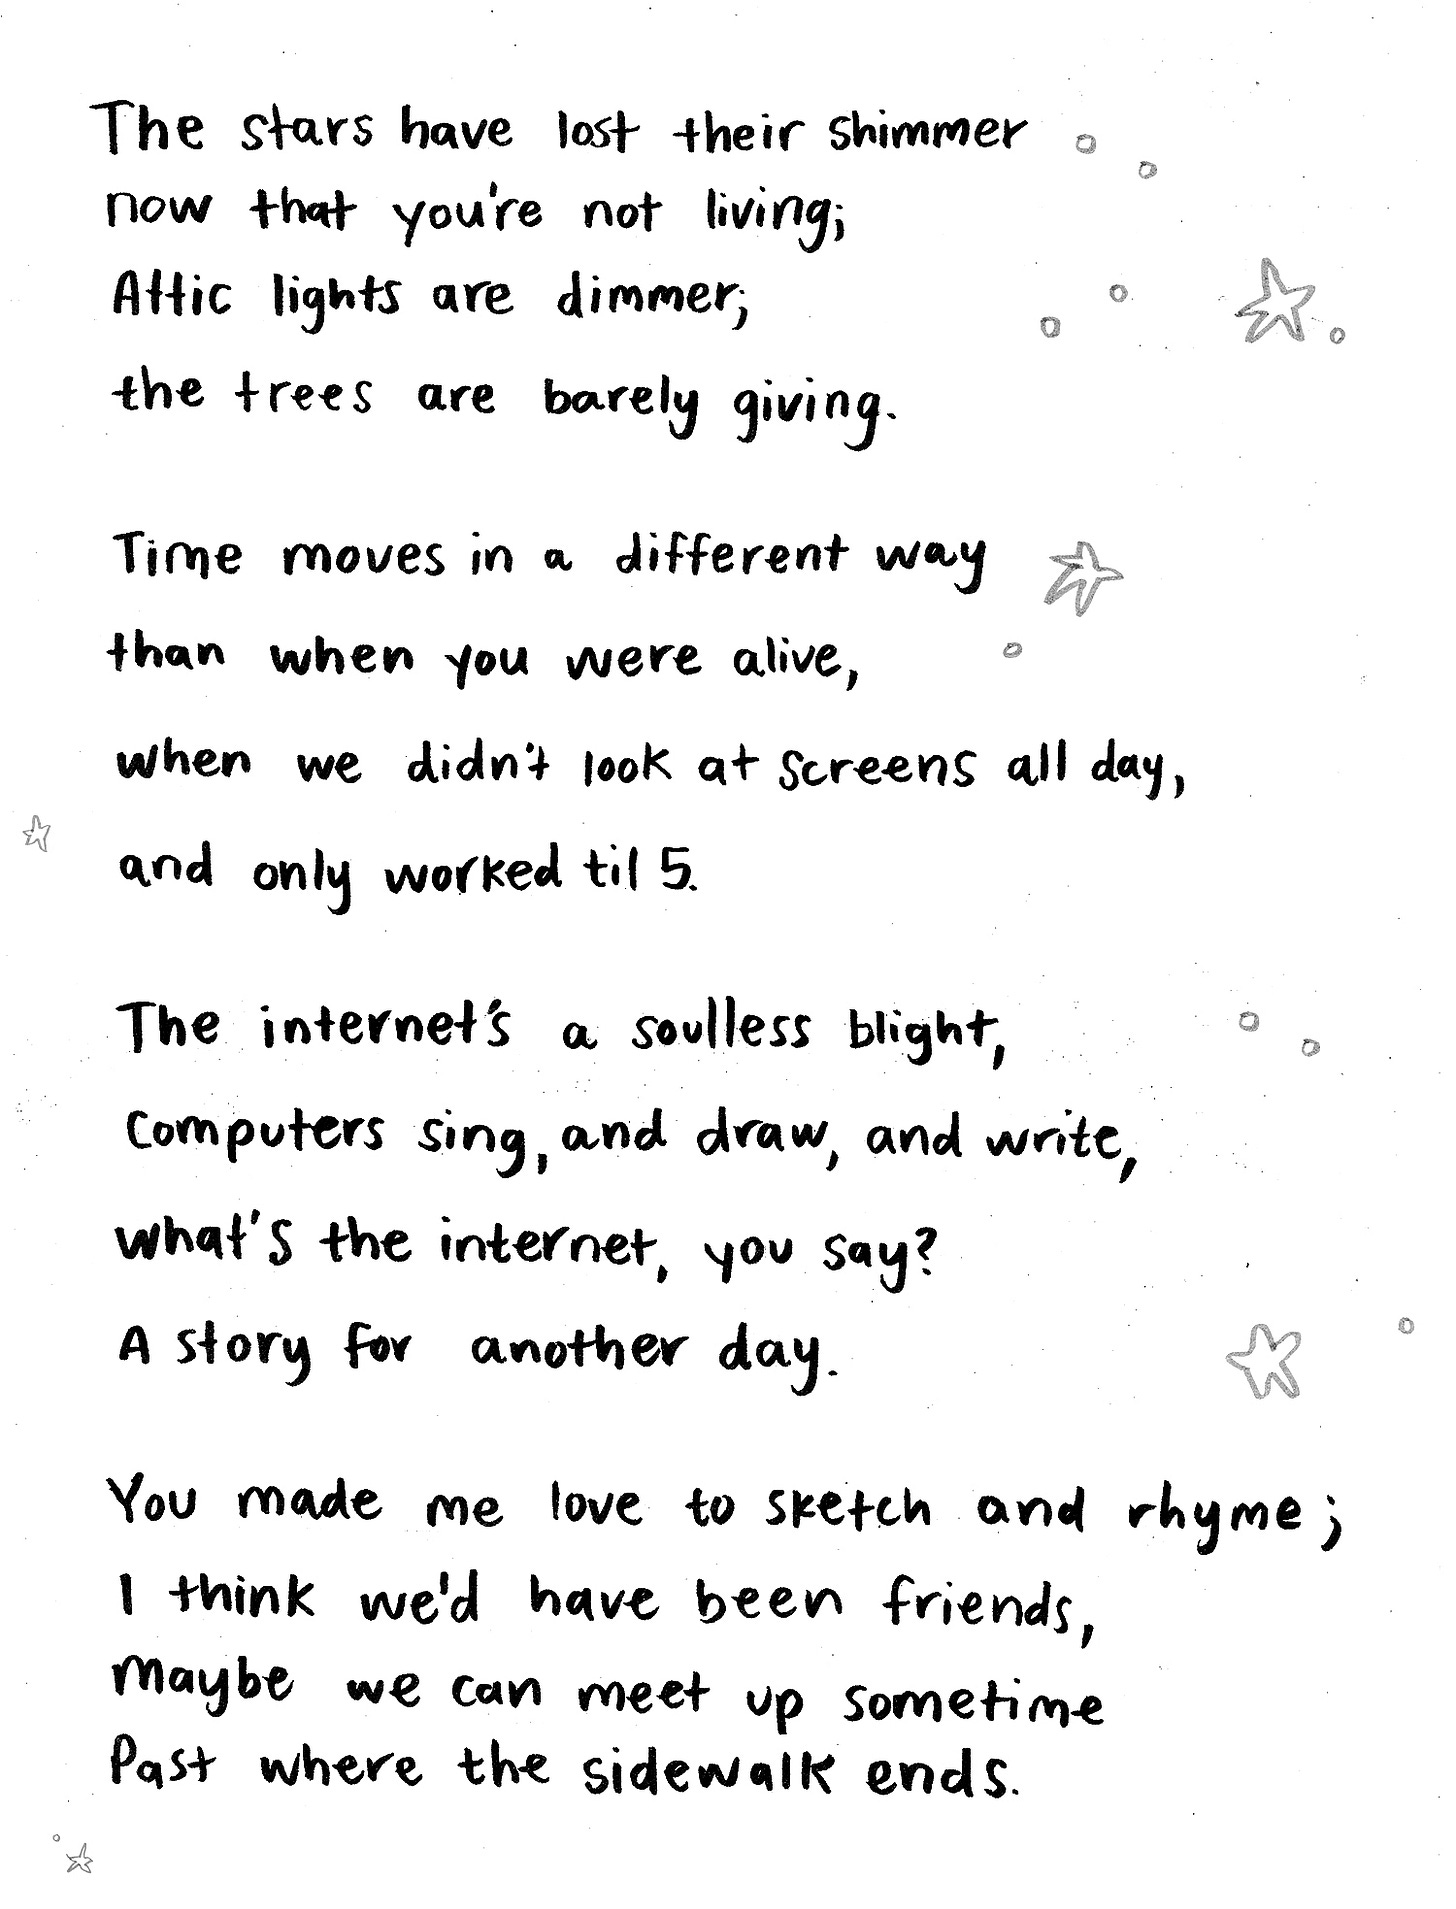 The stars have lost their shimmer
now that you're not living;
Attic lights are dimmer;
the trees are barely giving.
Time moves in a different way
than when you were alive,
when we didn't look at screens all day,
and only worked til 5.
The internet's a soulless blight,
Computers sing, and draw, and write,
what's the internet, you say?
A story for another day.
You made me love to sketch and rhyme;
I think we'd have been friends,
Maybe we can meet up sometime
Past where the sidewalk ends.